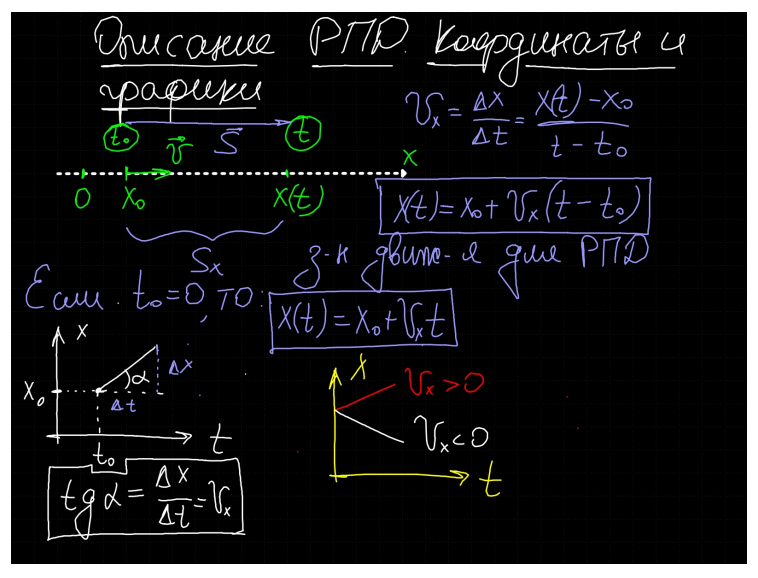 Описание РПД. Координаты и
графики
t₀ S⃗ t
v⃗
0 x₀ x(t) x
Sₓ
Vₓ = Δx/Δt = (x(t) - x₀)/(t - t₀)
x(t) = x₀ + Vₓ(t - t₀)
з-н движ-я для РПД
Если t₀ = 0, то:
x(t) = x₀ + Vₓt
x
x₀ α Δx
Δt
t₀ t
tg α = Δx/Δt = Vₓ
x
Vₓ > 0
Vₓ < 0
t